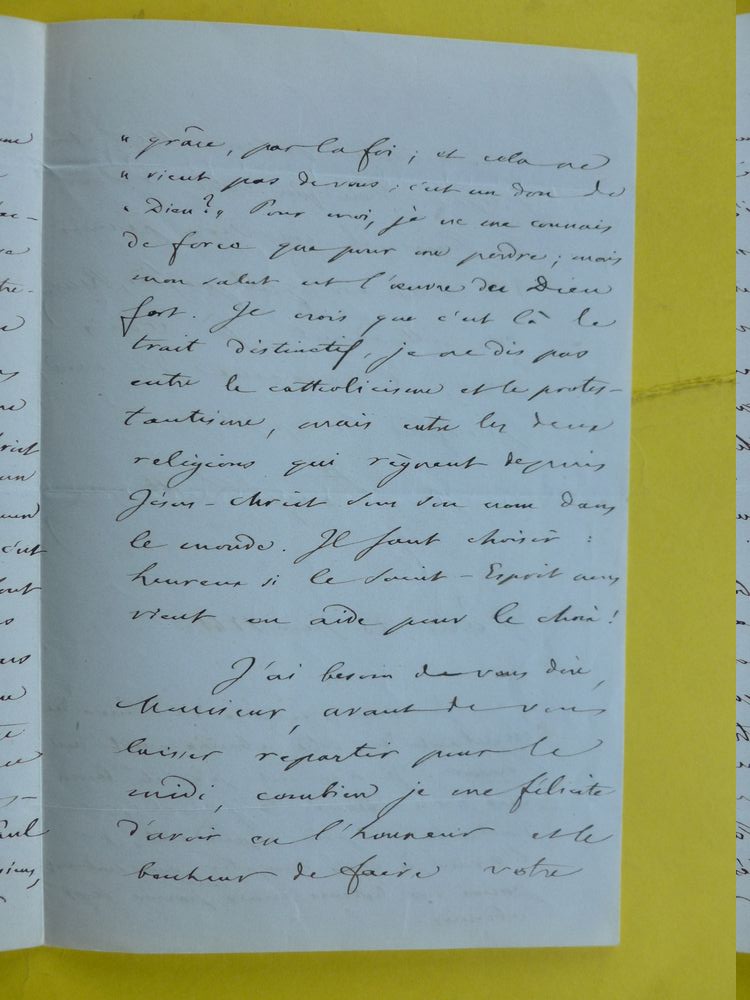 " grâce, par la foi ; et cela ne
" vient pas de vous ; c'est un don de
" Dieu ? " Pour moi, je ne me connais
de force que pour me perdre ; mais
mon salut est l'œuvre du Dieu
fort. Je crois que c'est là le
trait distinctif, je ne dis pas
entre le catholicisme et le protes-
tantisme, mais entre les deux
religions qui règnent depuis
Jésus-Christ sous son nom dans
le monde. Il faut choisir :
heureux si le Saint-Esprit nous
vient en aide pour le choix !
J'ai besoin de vous dire,
Monsieur, avant de vous
laisser repartir pour le
midi, combien je me félicite
d'avoir eu l'honneur et le
bonheur de faire votre